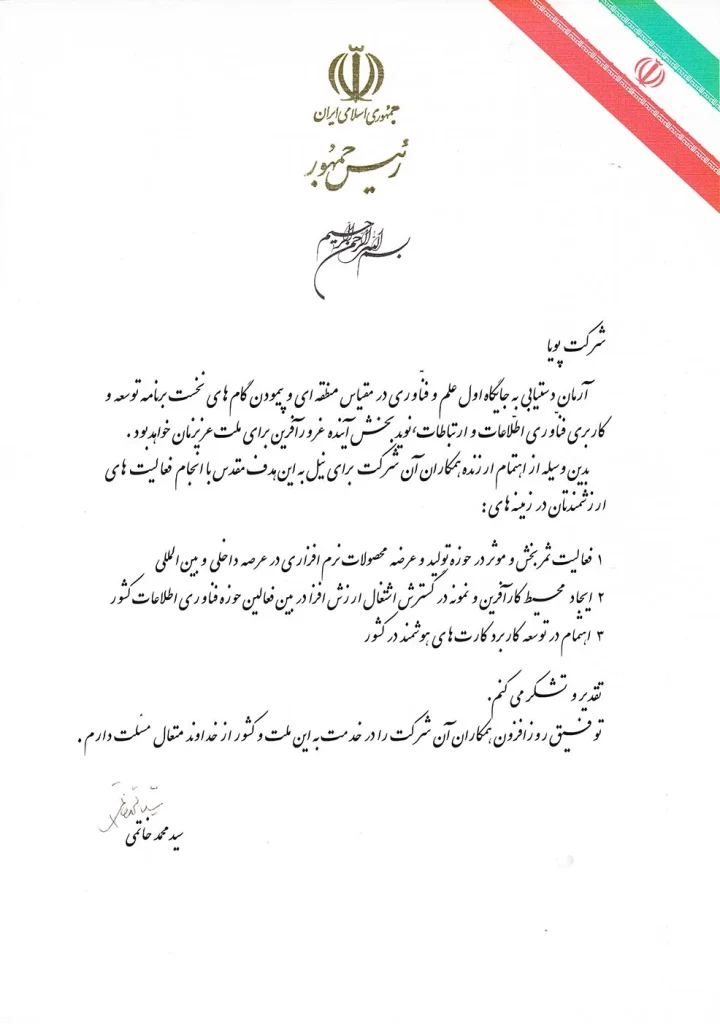 جمهوری اسلامی ایران
رئیس جمهور
بسم الله الرحمن الرحیم
شرکت پویا
آرمان دستیابی به جایگاه اول علم و فنّاوری در مقیاس منطقه ای و پیمودن گام های نخست برنامه توسعه و
کاربری فنّاوری اطلاعات و ارتباطات، نوید بخش آینده غرور آفرین برای ملت عزیزمان خواهد بود .
بدین وسیله از اهتمام ارزنده همکاران آن شرکت برای نیل به این هدف مقدس با انجام فعالیت های
ارزشمندتان در زمینه های :
۱ فعالیت ثمربخش و موثر در حوزه تولید و عرضه محصولات نرم افزاری در عرصه داخلی و بین المللی
۲ ایجاد محیط کارآفرین و نمونه در گسترش اشتغال ارزش افزا در بین فعالین حوزه فناوری اطلاعات کشور
۳ اهتمام در توسعه کاربرد کارت های هوشمند در کشور
تقدیر و تشکر می کنم.
توفیق روز افزون همکاران آن شرکت را در خدمت به این ملت و کشور از خداوند متعال مسئلت دارم .
سید محمد خاتمی